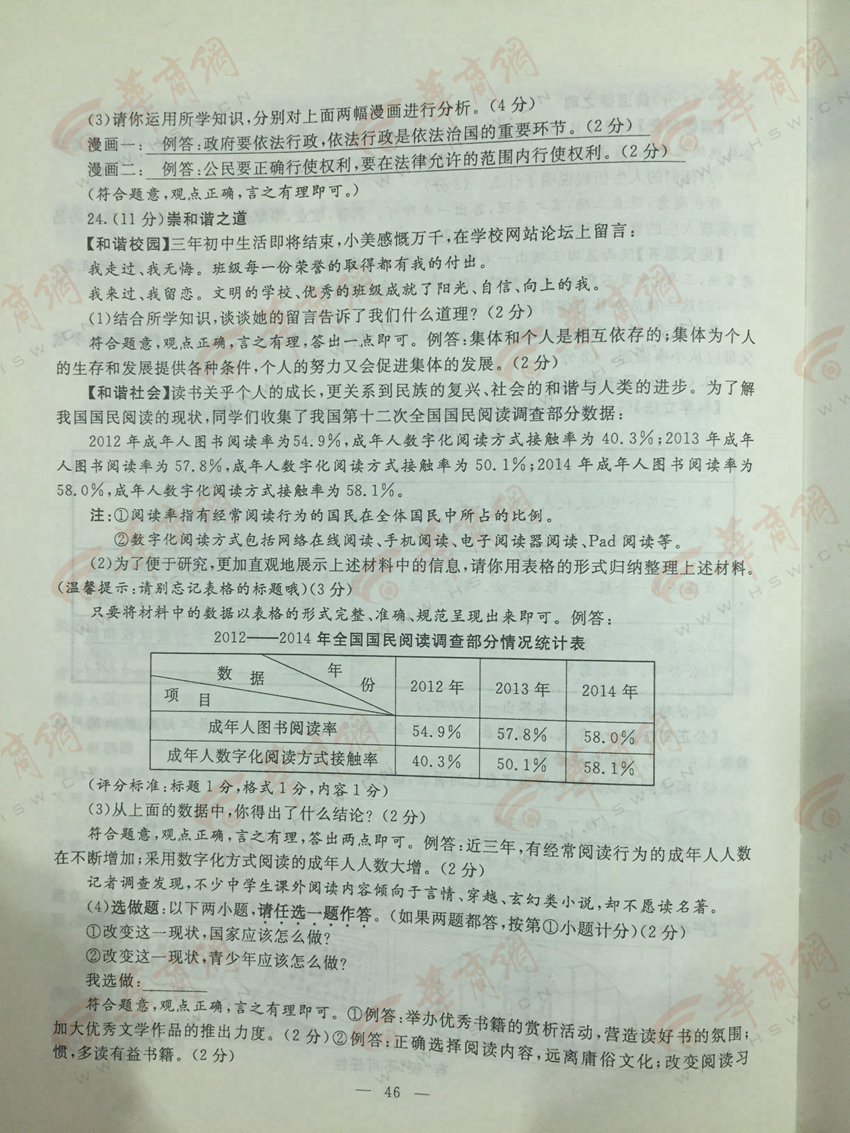 (3)请你运用所学知识,分别对上面两幅漫画进行分析。(4分)
漫画一: 例答:政府要依法行政,依法行政是依法治国的重要环节。(2分)
漫画二: 例答:公民要正确行使权利,要在法律允许的范围内行使权利。(2分)
(符合题意,观点正确,言之有理即可。)
24.(11分)崇和谐之道
【和谐校园】三年初中生活即将结束,小美感慨万千,在学校网站论坛上留言:
我走过、我无悔。班级每一份荣誉的取得都有我的付出。
我来过、我留恋。文明的学校、优秀的班级成就了阳光、自信、向上的我。
(1)结合所学知识,谈谈她的留言告诉了我们什么道理?(2分)
符合题意,观点正确,言之有理,答出一点即可。例答:集体和个人是相互依存的;集体为个人
的生存和发展提供各种条件,个人的努力又会促进集体的发展。(2分)
【和谐社会】读书关乎个人的成长,更关系到民族的复兴、社会的和谐与人类的进步。为了解
我国国民阅读的现状,同学们收集了我国第十二次全国国民阅读调查部分数据:
2012年成年人图书阅读率为54.9%,成年人数字化阅读方式接触率为40.3%;2013年成年
人图书阅读率为57.8%,成年人数字化阅读方式接触率为50.1%;2014年成年人图书阅读率为
58.0%,成年人数字化阅读方式接触率为58.1%。
注:①阅读率指有经常阅读行为的国民在全体国民中所占的比例。
②数字化阅读方式包括网络在线阅读、手机阅读、电子阅读器阅读、Pad阅读等。
(2)为了便于研究,更加直观地展示上述材料中的信息,请你用表格的形式归纳整理上述材料。
(温馨提示:请别忘记表格的标题哦)(3分)
只要将材料中的数据以表格的形式完整、准确、规范呈现出来即可。例答:
2012——2014年全国国民阅读调查部分情况统计表
数据 年份 项目 2012年 2013年 2014年
成年人图书阅读率 54.9% 57.8% 58.0%
成年人数字化阅读方式接触率 40.3% 50.1% 58.1%
(评分标准:标题1分,格式1分,内容1分)
(3)从上面的数据中,你得出了什么结论?(2分)
符合题意,观点正确,言之有理,答出两点即可。例答:近三年,有经常阅读行为的成年人人数
在不断增加;采用数字化方式阅读的成年人人数大增。(2分)
记者调查发现,不少中学生课外阅读内容倾向于言情、穿越、玄幻类小说,却不愿读名著。
(4)选做题:以下两小题,请任选一题作答。(如果两题都答,按第①小题计分)(2分)
①改变这一现状,国家应该怎么做?
②改变这一现状,青少年应该怎么做?
我选做:
符合题意,观点正确,言之有理即可。①例答:举办优秀书籍的赏析活动,营造读好书的氛围;
加大优秀文学作品的推出力度。(2分)②例答:正确选择阅读内容,远离庸俗文化;改变阅读习
惯,多读有益书籍。(2分)
— 46 —
华商网
HSW.CN